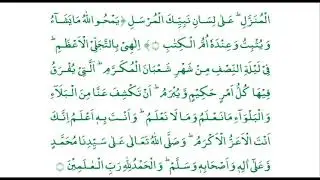 الْمُنَزَّلِ ۖ عَلٰى لِسَانِ نَبِيِّكَ الْمُرْسَلِ ﴿يَمْحُوا اللّٰهُ مَا يَشَآءُ
وَيُثْبِتُ وَعِنْدَهٗ اُمُّ الْكِتٰبِ ۝﴾ اِلٰهِيْ بِالتَّجَلِّيِّ الْاَعْظَمِ ۖ
فِيْ لَيْلَةِ النِّصْفِ مِنْ شَهْرِ شَعْبَانَ الْمُكَرَّمِ ۖ الَّتِيْ يُفْرَقُ
فِيْهَا كُلُّ اَمْرٍ حَكِيْمٍ وَّيُبْرَمُ ۖ اَنْ تَكْشِفَ عَنَّا مِنَ الْبَلَآءِ
وَالْبَلَوَآءِ مَا نَعْلَمُ وَمَا لَا نَعْلَمُ ۖ وَاَنْتَ بِهٖ اَعْلَمُ اِنَّكَ
اَنْتَ الْاَعَزُّ الْاَكْرَمُ ۖ وَصَلَّى اللّٰهُ تَعَالٰى عَلٰى سَيِّدِنَا مُحَمَّدٍ
وَّعَلٰى اٰلِهٖ وَاَصْحَابِهٖ وَسَلَّمَ ۖ وَالْحَمْدُ لِلّٰهِ رَبِّ الْعٰلَمِيْنَ ۝